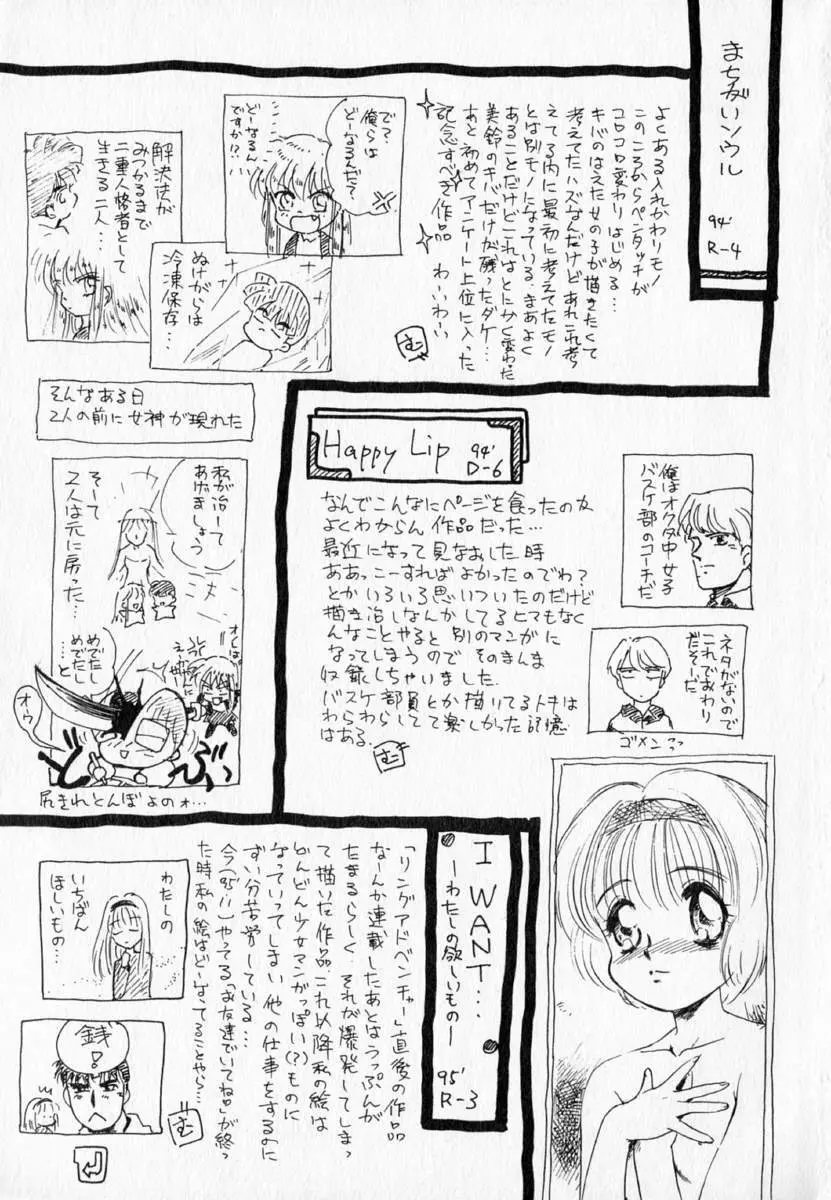 まちがいソウル
94' R-4
よくある入れかわりモノ
このころからペンタッチが
コロコロ変わりはじめる…
キバのはえた女の子が描きたくて
考えてたハズなんだけどあれこれ考
えてる内に最初に考えてたモノ
とは別モノになっている、まあよく
あることだけどこれはとにかく変わった
美鈴のキバだけが残ったダケ…
あと初めてアンケート上位に入った
記念すべき作品 わーいわーい
む
で?
俺らは
どーなるんだ?
どーなるん
ですか!?
ぬけがらは
冷凍保存…
解決法が
みつかるまで
二重人格者として
生きる二人…
そんなある日
2人の前に女神が現れた
私が治して
あげましょう
そして
2人は元に戻った…
めでたし
めでたし
…と
オウ
尻きれとんぼよのォ…
Happy Lip 94' D-6
なんでこんなにページを食ったのか
よくわからん作品だった…
最近になって見なおした時
ああっこーすればよかったのでわ?
とかいろいろ思いついたのだけど
描き治しなんかしてるヒマもなく
んなことやると別のマンガに
なってしまうので そのまんま
収録しちゃいました。
バスケ部員とか描いてるトキは
わらわらしてて楽しかった記憶
はある。
む
俺はオクタ中女子
バスケ部のコーチだ
ネタがないので
これでおわり
だそーだ
ゴメンニャ
I WANT…
―わたしの欲しいもの―
95' R-3
「リングアドベンチャー」直後の作品
なーんか連載したあとはうっぷんが
たまるらしく、それが爆発してしまっ
て描いた作品、これ以降私の絵は
どんどん少女マンガっぽい(?)ものに
なっていってしまい他の仕事をするのに
ずい分苦労している…
今(95'11)やってる「お友達でいてね」が終っ
た時私の絵はどーなってることやら…
む
わたしの
いちばん
ほしいもの…
銭!